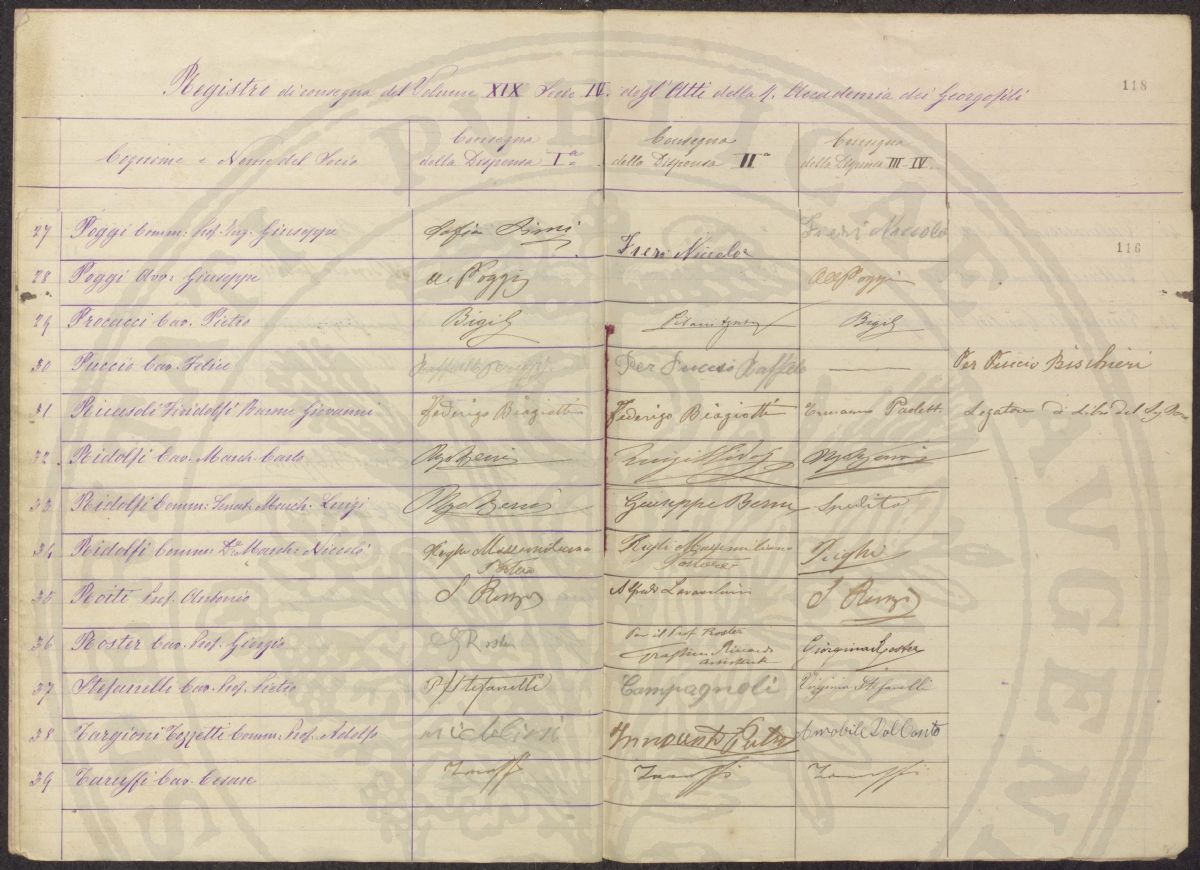 118
Registro di consegna del Volume XIX Serie IV. degl'Atti della R. Accademia dei Georgofili
Cognome e Nome del Socio
Consegna
della Dispensa Iª
Consegna
della Dispensa IIª
Consegna
della Dispensa III-IV.
116
27 Poggi Comm: Prof. Ing. Giuseppe Sofia Fieri Niccolò Fieri Niccolò
28 Poggi Avv: Giuseppe Poggi Poggi
29 Procacci Cav. Pietro Bigil Bigil
30 Puccio Cav. Felice Per Puccio Raffaele — Per Puccio Bischieri
31 Ricasoli Firidolfi Barone Giovanni Federigo Biagiotti Federigo Biagiotti Ermanno Paolett. Legatore di Libri del Sig
32 Ridolfi Cav. March. Carlo Luigi
33 Ridolfi Comm: Senat. March. Luigi Giuseppe Spedito
34 Ridolfi Comm: Dr. March. Niccolò Righi Massimiliano Righi Massimiliano Righi
35 Roiti Prof. Antonio S Renzi Alfredo S Renzi
36 Roster Cav. Prof. Giorgio G Roster Per il Prof. Roster Giorgina Roster
Riccardo
assistente
37 Stefanelli Cav. Prof. Pietro P. Stefanelli Campagnoli Virginia Stefanelli
38 Targioni Tozzetti Comm: Prof. Adolfo Innocenti Amabile Dal Canto
39 Taruffi Cav. Cesare Taruffi Taruffi Taruffi
PVBLICAE